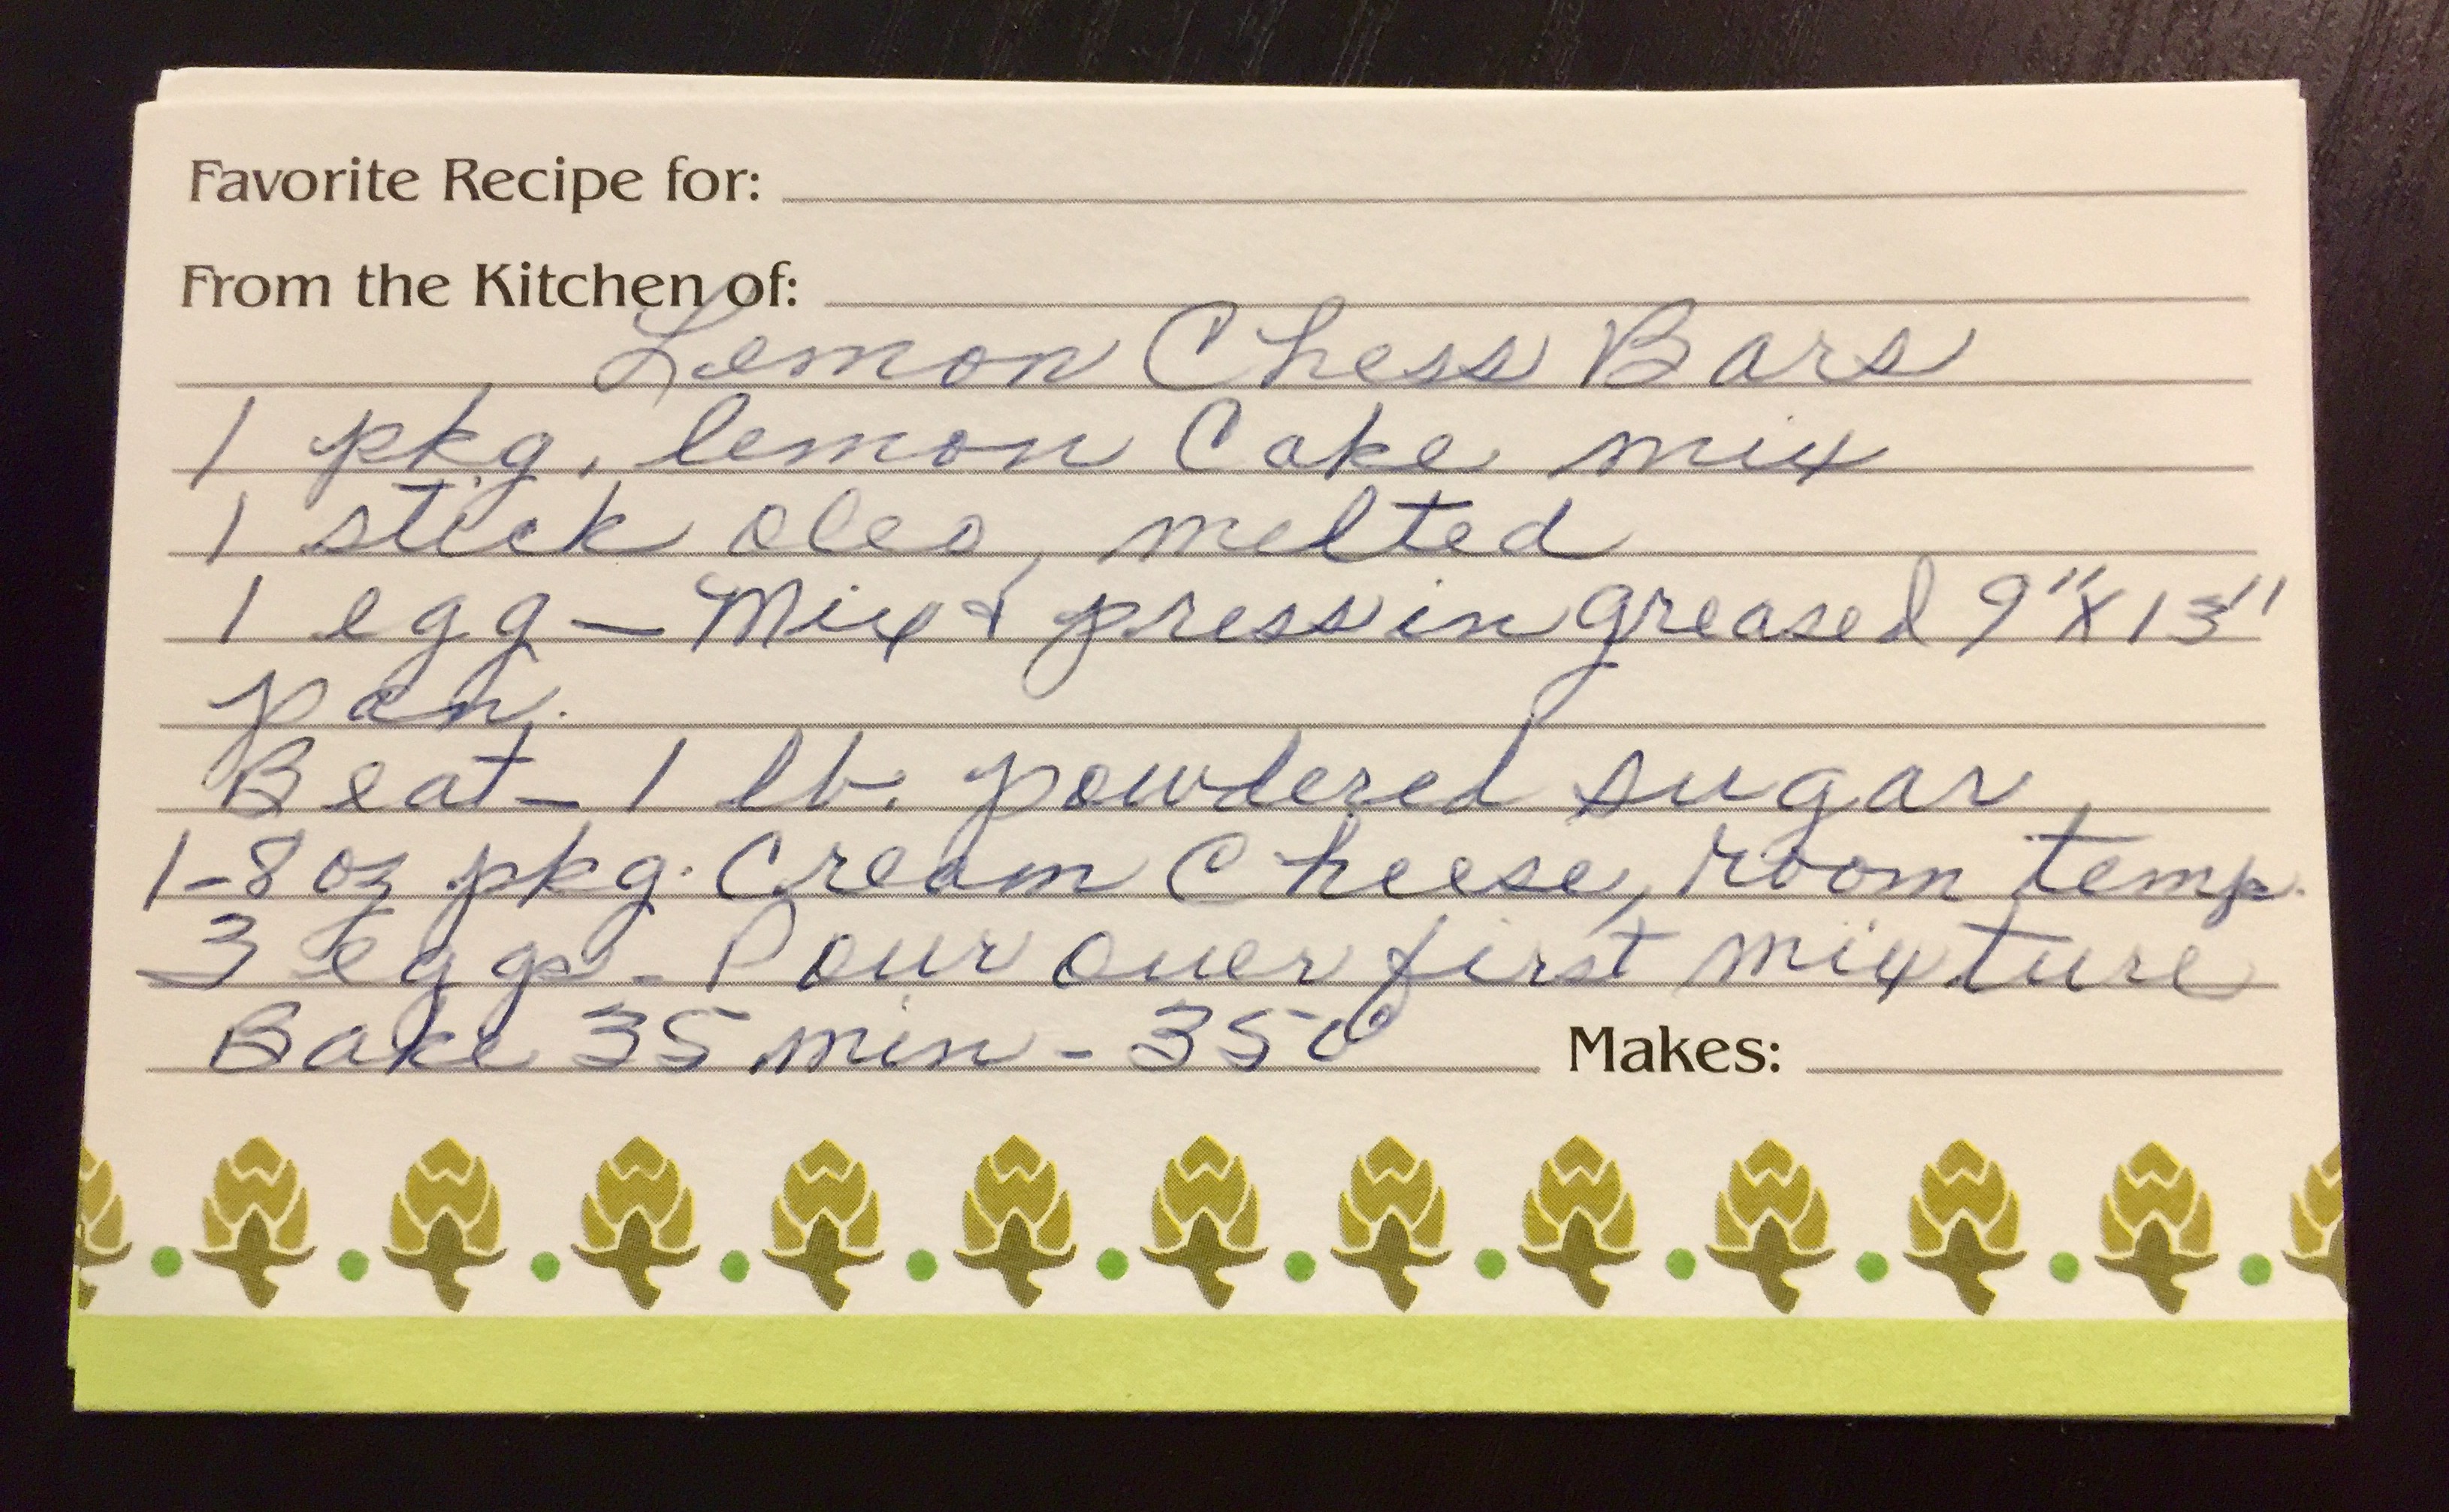 Favorite Recipe for:
From the Kitchen of:
Lemon Chess Bars
1 pkg. lemon Cake mix
1 stick oleo, melted
1 egg — Mix & press in greased 9"X13"
pan.
Beat – 1 lb. powdered sugar,
1-8 oz pkg. Cream Cheese, room temp.
3 eggs – Pour over first mixture
Bake 35 min – 350° Makes: